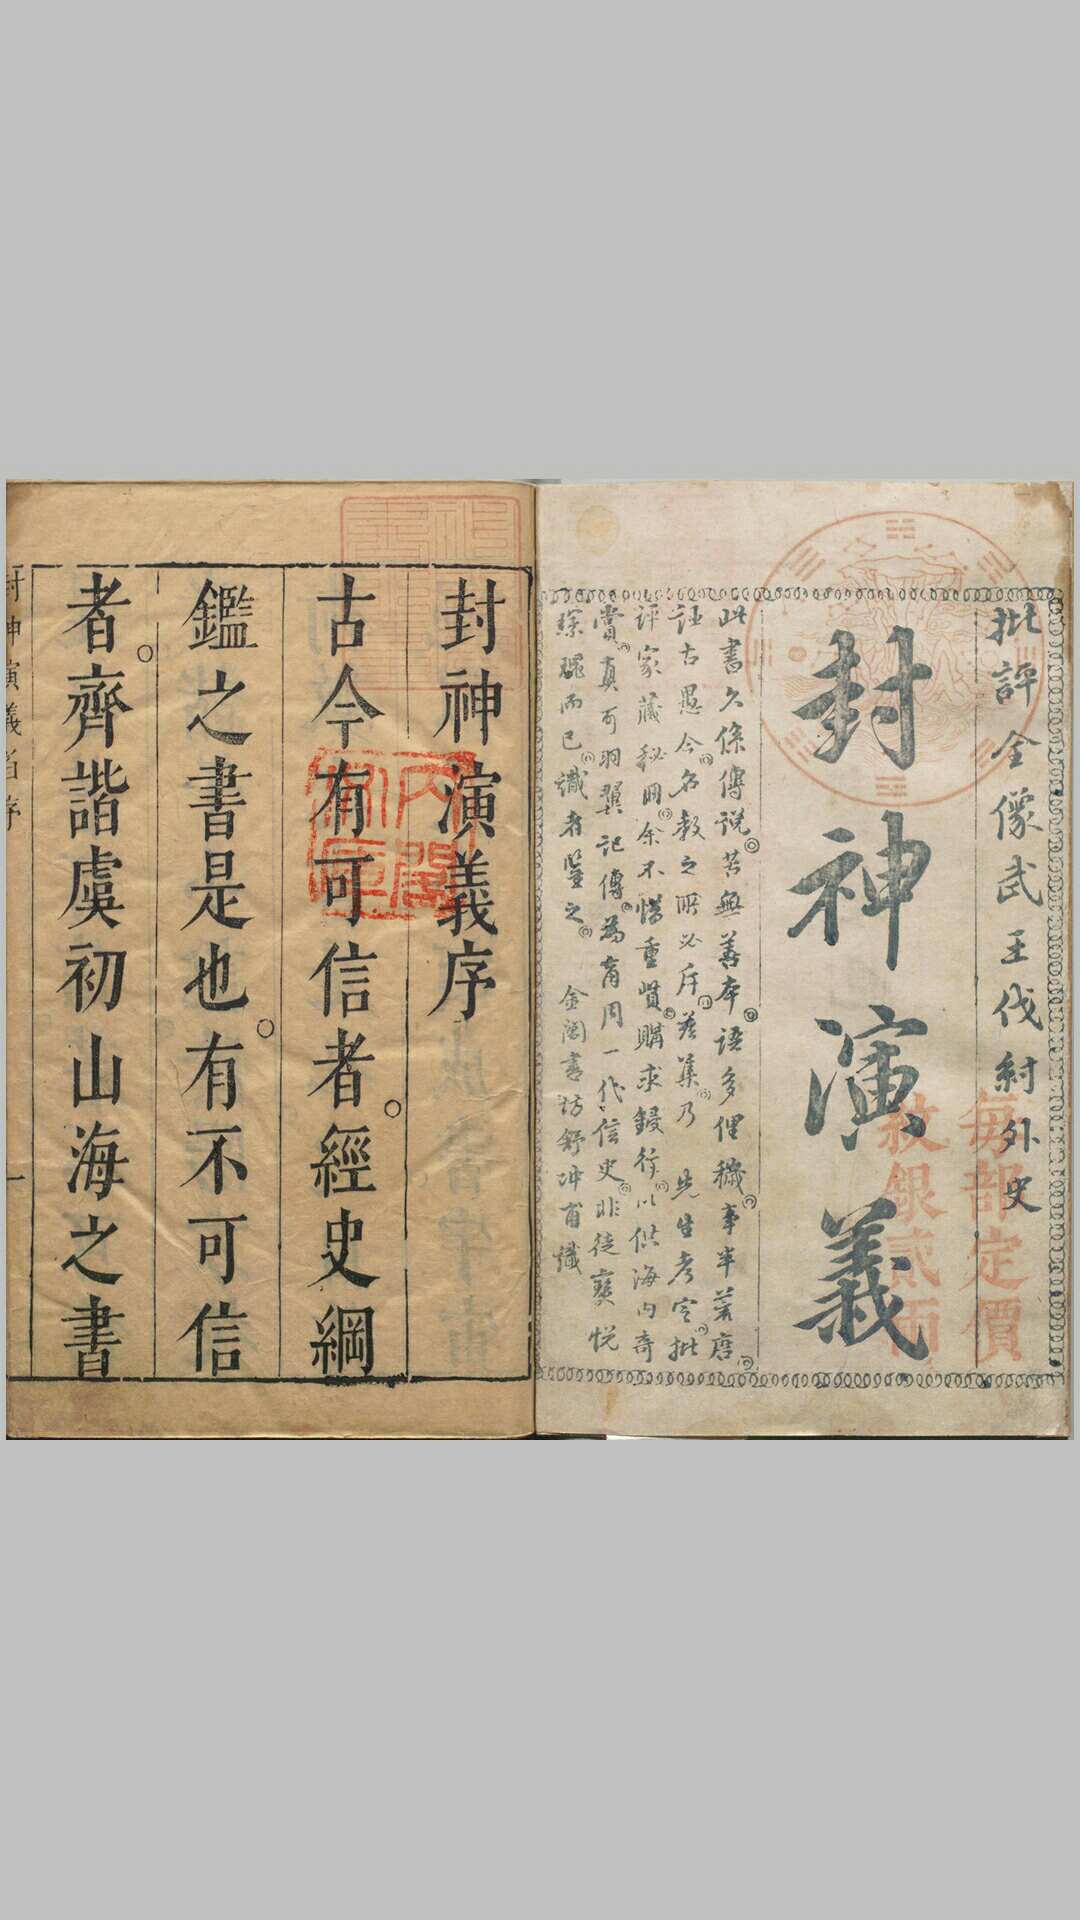 批評全像武王伐紂外史
封神演義
每部定價
紋銀貳兩
此書久係傳說苦無善本語多俚穢事半荒唐
評古愚今名教之所必斥茲集乃 先生考定批
評家藏秘冊余不惜重貲購求鋟行以供海內奇
賞真可羽翼記傳為商周一代信史非徒寶悅
琛瑰而已識者鑒之 金閶書坊舒冲甫識
封神演義序
古今有可信者經史綱
鑑之書是也有不可信
者齊諧虞初山海之書
封神演義 序 一
內閣文庫